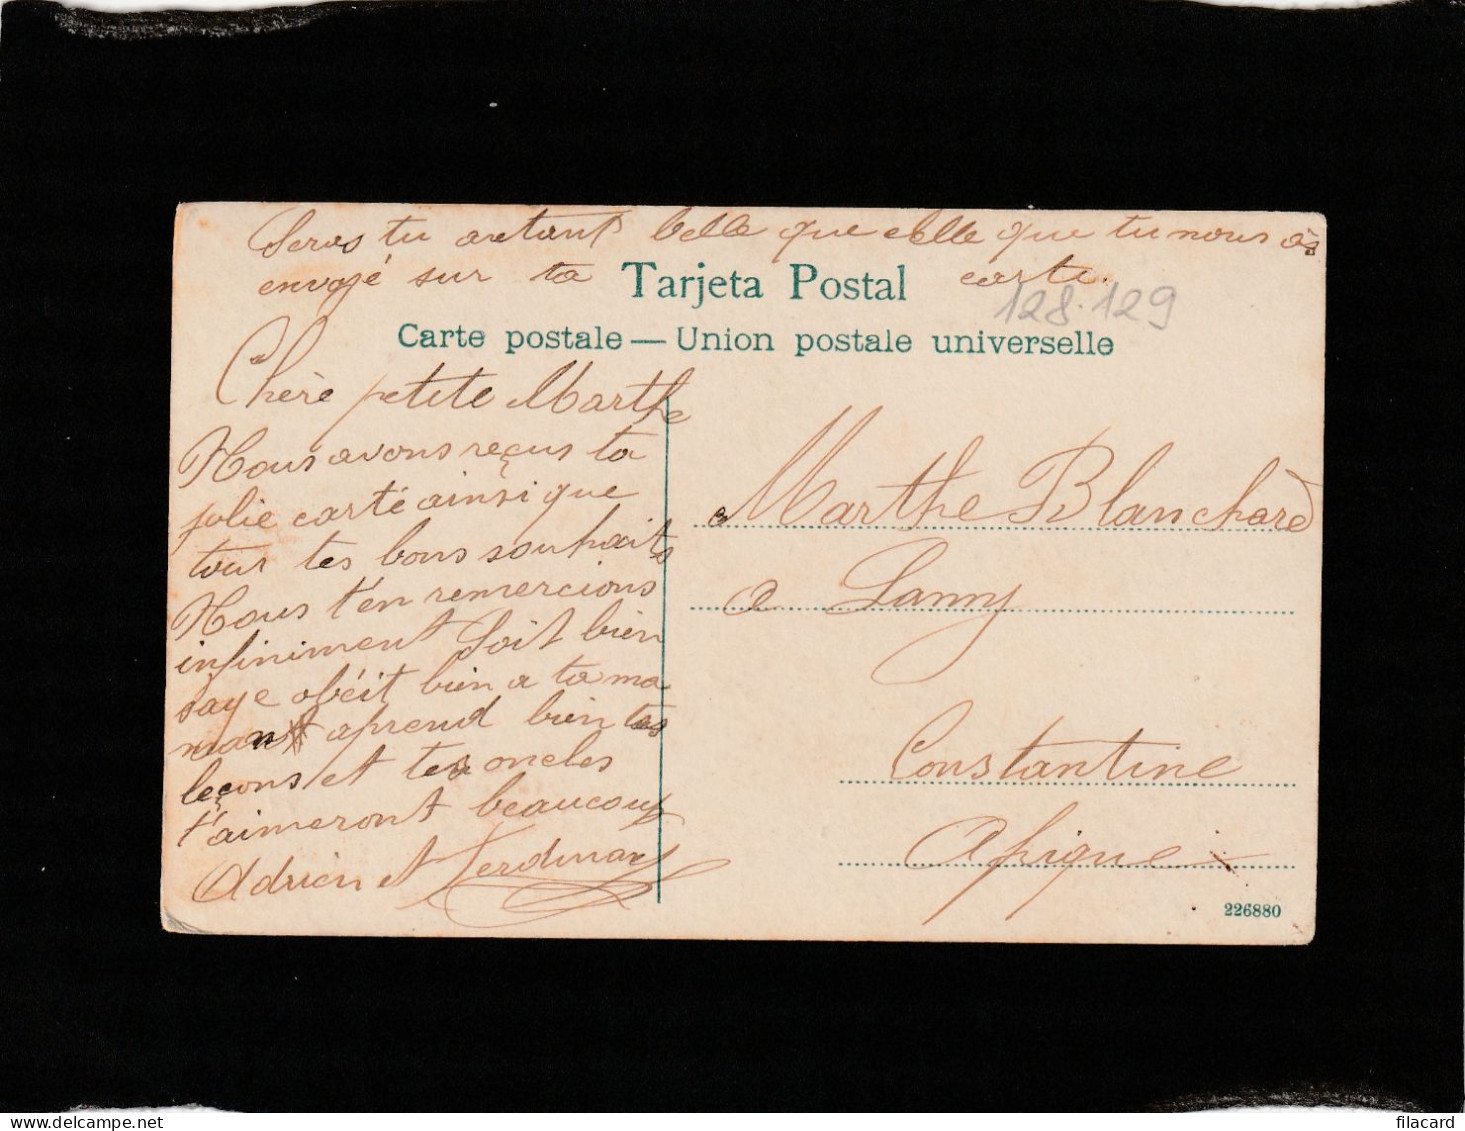 Seras tu autant belle que celle que tu nous as
envoyé sur ta carte.
Tarjeta Postal
128.129
Carte postale — Union postale universelle
Chère petite Marthe
Nous avons reçus ta
jolie carte ainsi que
tour tes bons souhaits
Nous t'en remercions
infiniment Soit bien
sage obéit bien a ta ma
man aprend bien tes
leçons et tes oncles
t'aimeront beaucoup
Adrien et Ferdinand
a Marthe Blanchard
a Lamy
Constantine
Afrique
226880
filacard